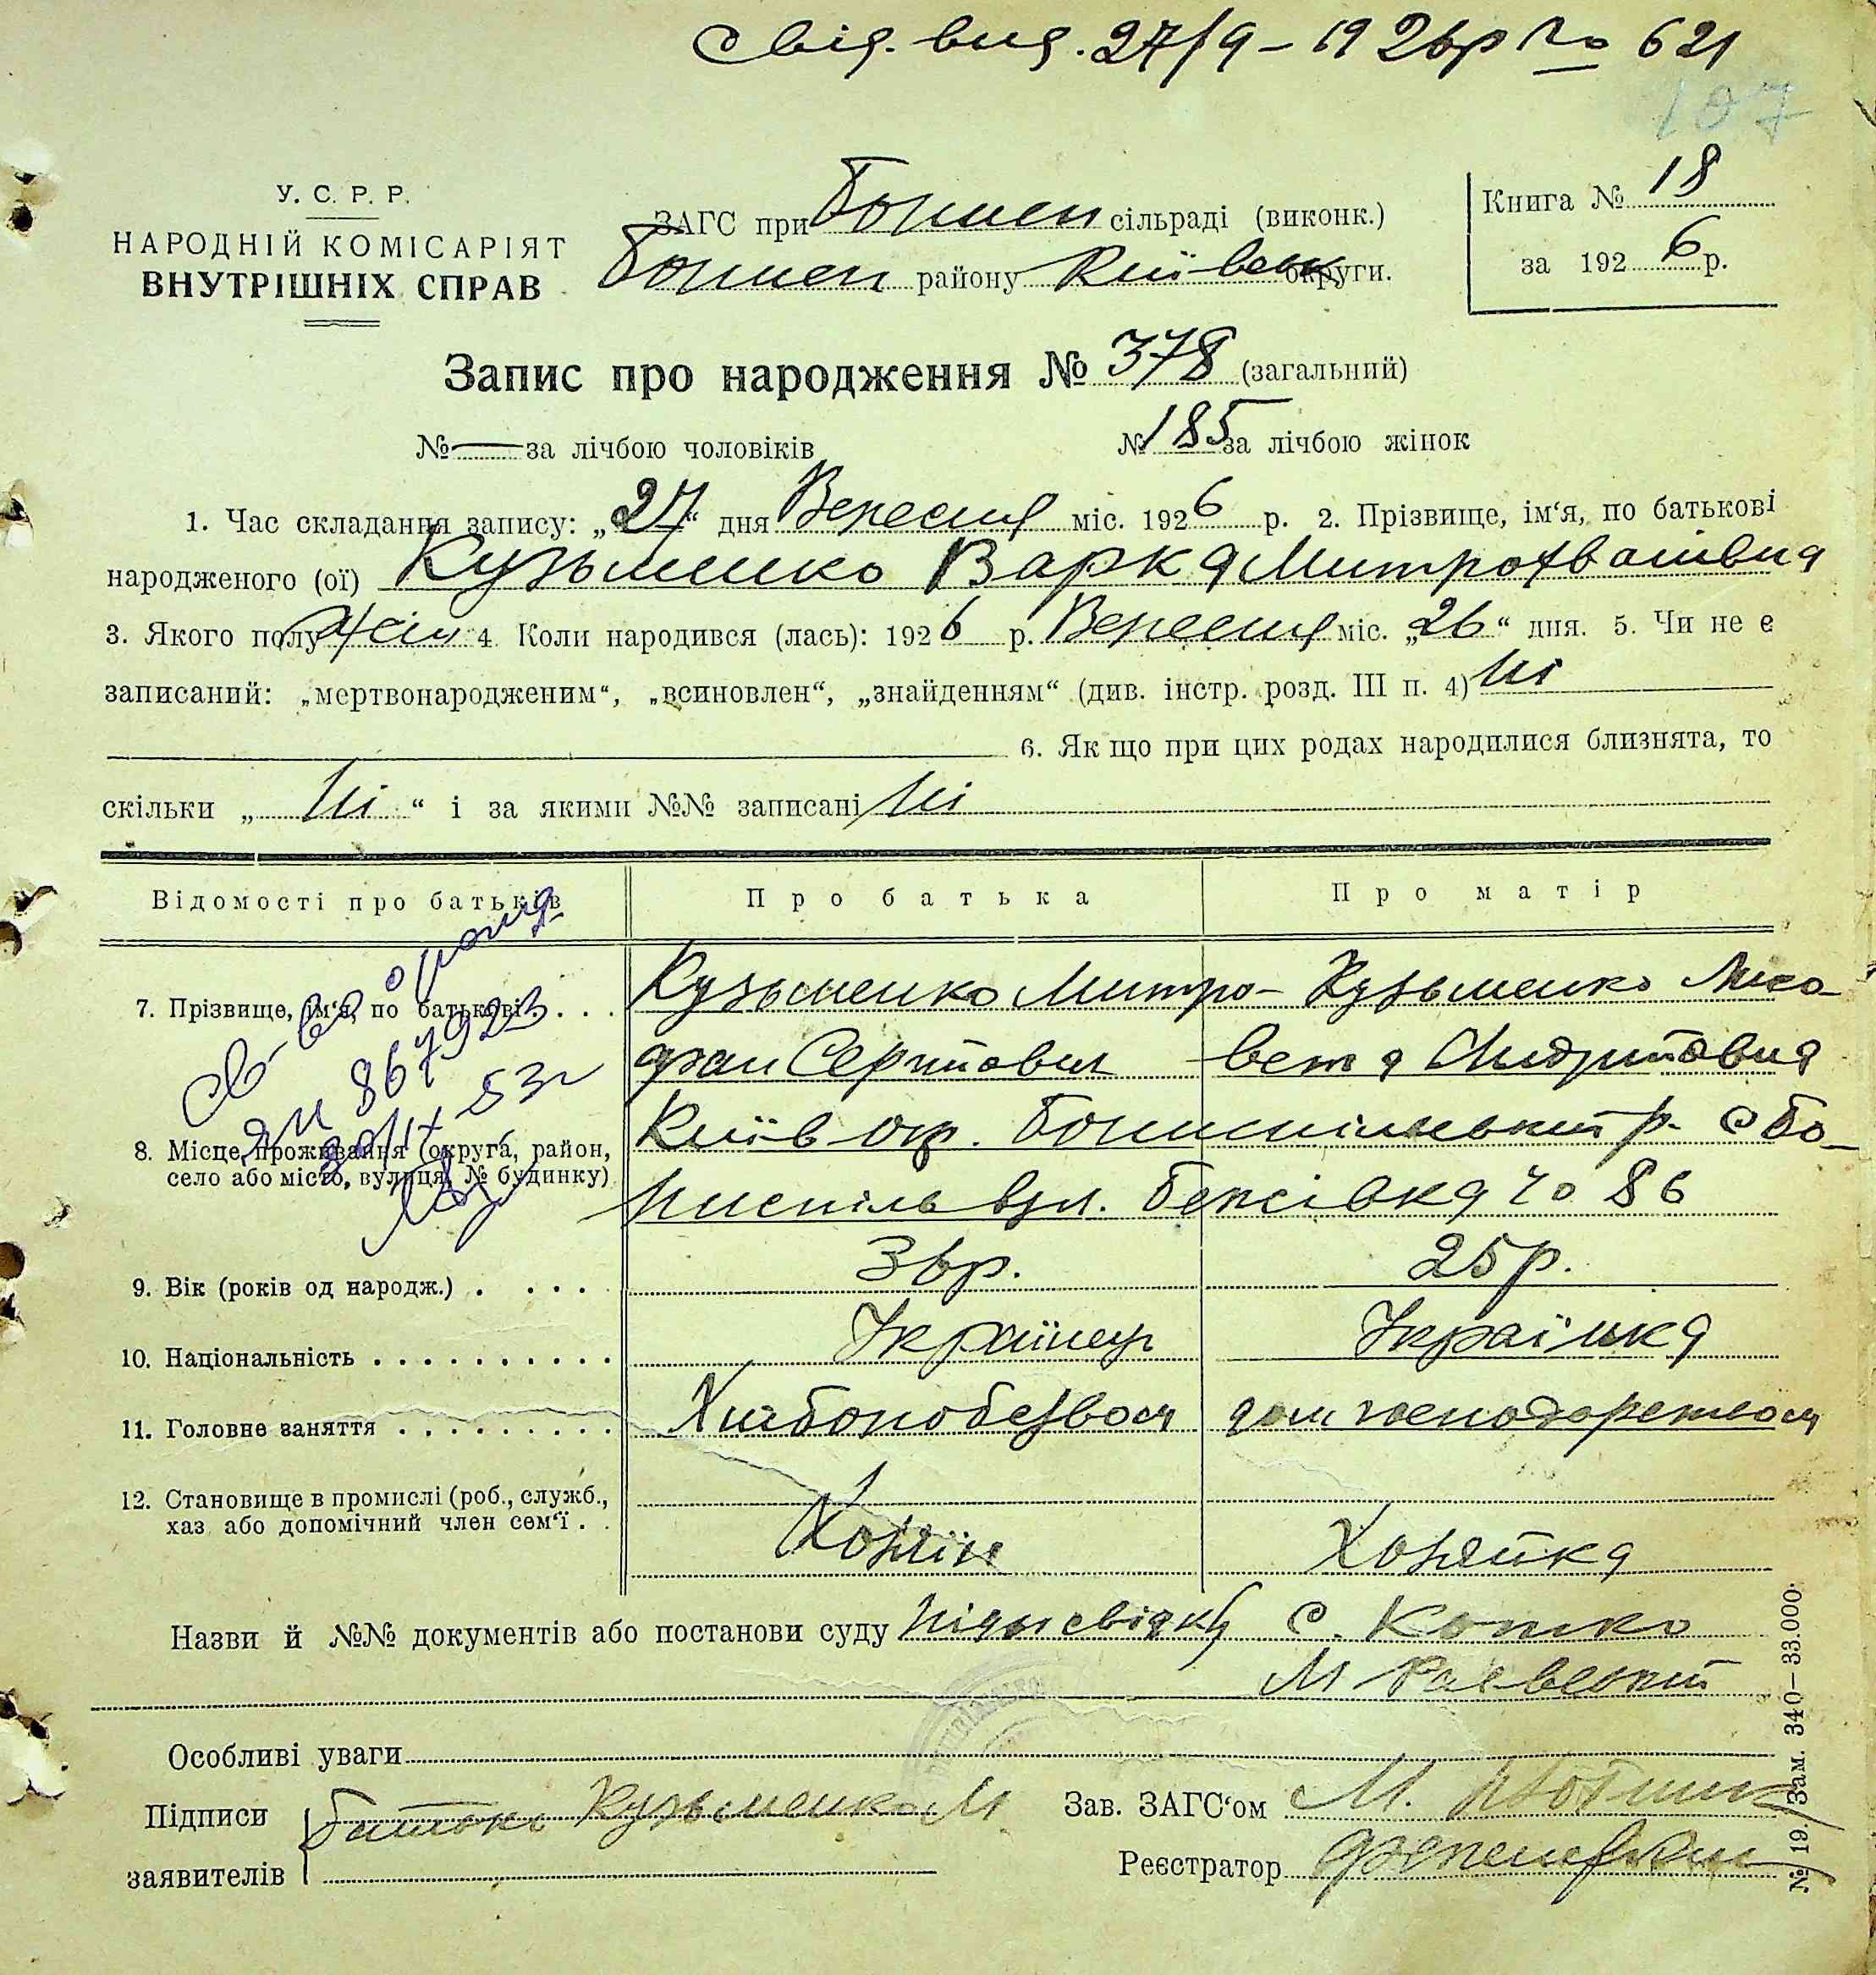 Свід. вид. 27/9 – 1926р № 621
107
У. С. Р. Р.
НАРОДНІЙ КОМІСАРІЯТ
ВНУТРІШНІХ СПРАВ
ЗАГС при Борисп сільраді (виконк.)
Борисп району Київськ округи.
Книга № 18
за 1926 р.
Запис про народження № 378 (загальний)
№ — за лічбою чоловіків № 185 за лічбою жінок
1. Час складання запису: „27“ дня Вересня міс. 1926 р. 2. Прізвище, ім‘я, по батькові
народженого (ої) Кузьменко Варка Митрофванівна
3. Якого полу жін 4. Коли народився (лась): 1926 р. Вересня міс. „26“ дня. 5. Чи не є
записаний: „мертвонародженим“, „всиновлен“, „знайденням“ (див. інстр. розд. III п. 4) ні
6. Як що при цих родах народилися близнята, то
скільки „ ні “ і за якими №№ записані ні
Відомості про батьків Про батька Про матір
7. Прізвище, ім‘я, по батькові . . . Кузьменко Митро- Кузьменко Лиса-
фан Сергійович вета Андріївна
8. Місце проживання (округа, район, Київ окр. Бориспільський р. с Бо-
село або місто, вулиця, № будинку) риспіль вул. Безсівка № 86
св-во о рожд
867923
53г
9. Вік (років од народж.) . . . . . 36р. 25р.
10. Національність . . . . . . . . . . Українец Українка
11. Головне заняття . . . . . . . . . Хліборобство дом господарство
12. Становище в промислі (роб., служб.,
хаз або допомічний член сем‘ї . . Хозяїн Хозяйка
Назви й №№ документів або постанови суду свідки С. Котко
М Раевский
Особливі уваги
Підписи Батько Кузьменко М. Зав. ЗАГС‘ом М.
заявителів Реєстратор
№ 19. Зам. 340—33.000.